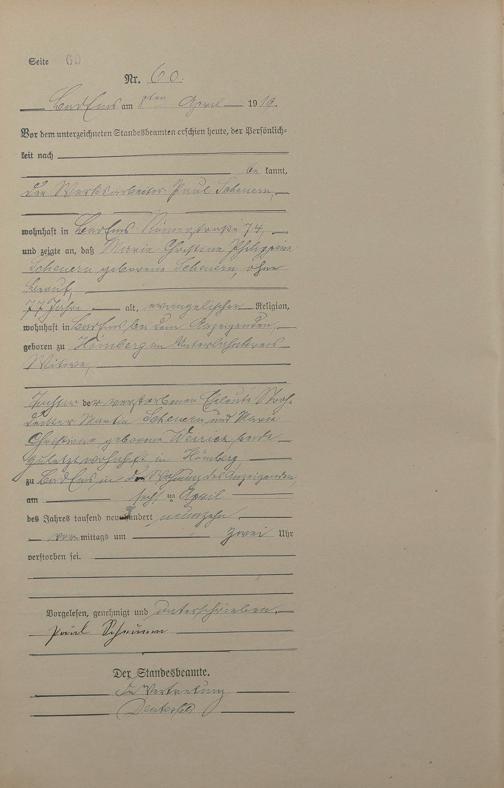 Seite 60
Nr. 60.
Bad Ems am 8ten April 1919.
Vor dem unterzeichneten Standesbeamten erschien heute, der Persönlich-
keit nach
be kannt,
der Werksarbeiter Paul Scheuern,
wohnhaft in Bad Ems Römerstraße 74,
und zeigte an, daß Maria Christina Philippine
Scheuern geborene Scheuern, ohne
Beruf,
77 Jahre alt, evangelischer Religion,
wohnhaft in Bad Ems bei dem Anzeigenden,
geboren zu Homberg
Witwe,
Tochter der verstorbenen Eheleute
Scheuern und Maria
geborene beide
zuletzt wohnhaft in Homberg
zu Bad Ems, in der Wohnung des Anzeigenden,
am sechsten April
des Jahres tausend neunhundert neunzehn
vor mittags um zwei Uhr
verstorben sei.
Vorgelesen, genehmigt und unterschrieben.
Paul Scheuern
Der Standesbeamte.
In Vertretung